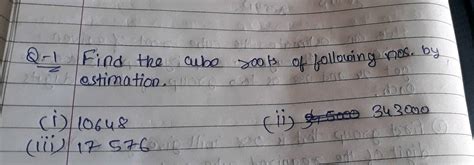 Q-1 Find the cube roots of following nos. by
estimation.
(i) 10648 (ii) 343000
(iii) 17576